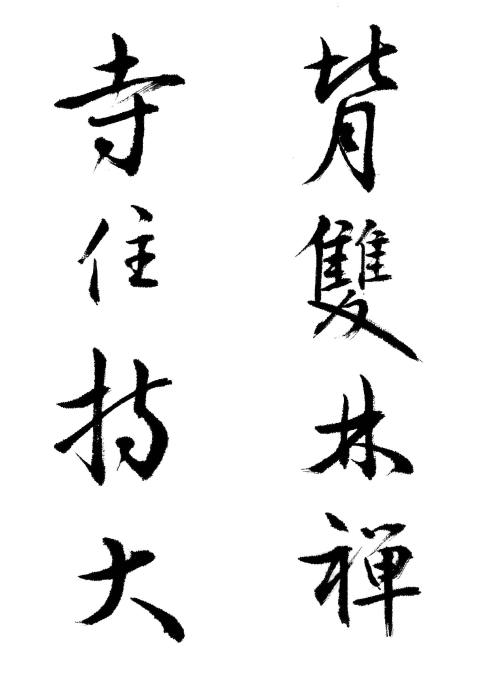 背雙林禅
寺住持大